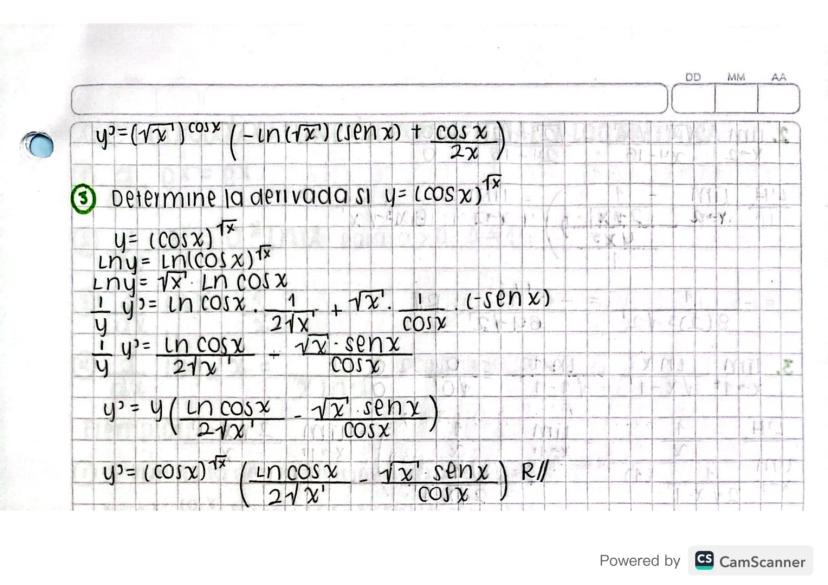 DD MM AA
y'=(√x)^cosx (-Ln(√x)(sen x) + cos x/2x)
③ Determine la derivada si y= (cosx)^√x
y= (cosx)^√x
Lny= Ln(cosx)^√x
Lny= √x · Ln cosx
1/y y'= Ln cosx · 1/2√x + √x · 1/cosx · (-sen x)
1/y y'= Ln cosx/2√x - √x · senx/cosx
y'= y(Ln cosx/2√x - √x · senx/cosx)
y'= (cosx)^√x (Ln cosx/2√x - √x · senx/cosx) R//
Powered by CS CamScanner